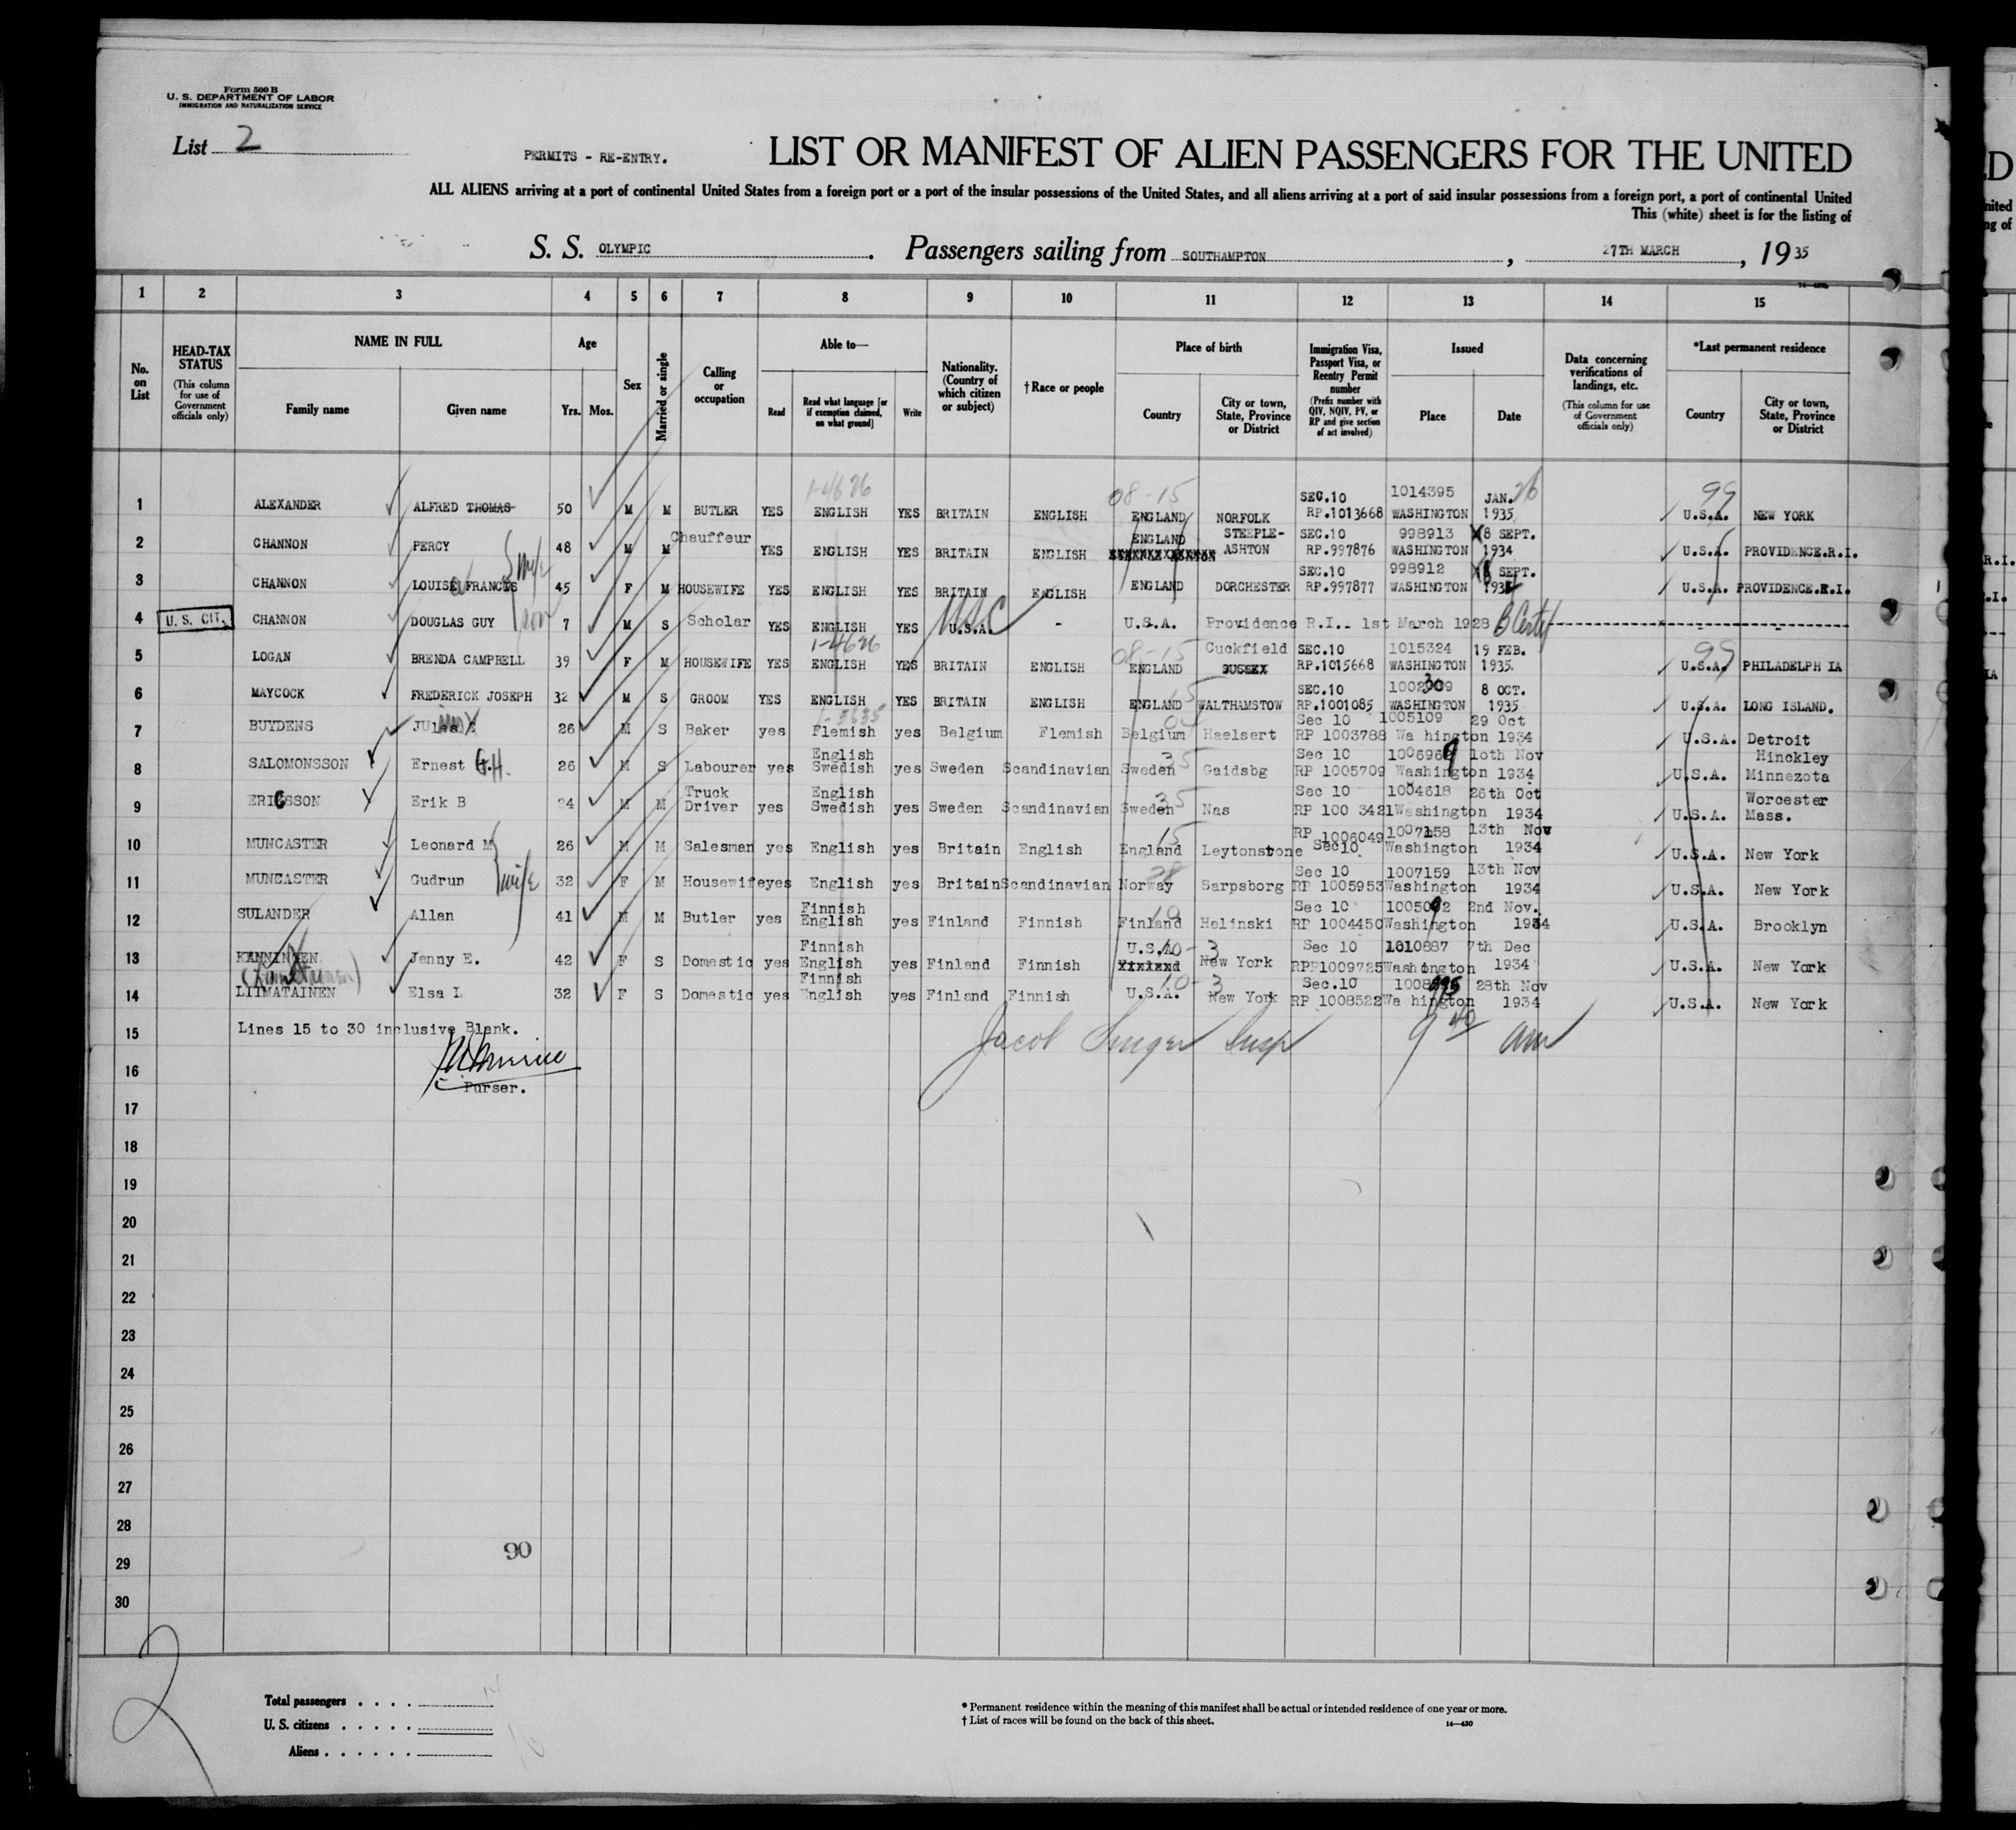 Form 500 B
U. S. DEPARTMENT OF LABOR
IMMIGRATION AND NATURALIZATION SERVICE
List 2
PERMITS - RE-ENTRY.
LIST OR MANIFEST OF ALIEN PASSENGERS FOR THE UNITED
ALL ALIENS arriving at a port of continental United States from a foreign port or a port of the insular possessions of the United States, and all aliens arriving at a port of said insular possessions from a foreign port, a port of continental United
This (white) sheet is for the listing of
S. S. OLYMPIC. Passengers sailing from SOUTHAMPTON, 27TH MARCH, 1935
1 2 3 4 5 6 7 8 9 10 11 12 13 14 15
No. on List
HEAD-TAX STATUS (This column for use of Government officials only)
NAME IN FULL Family name Given name
Age Yrs. Mos.
Sex
Married or single
Calling or occupation
Able to— Read Read what language [or if exemption claimed, on what ground] Write
Nationality. (Country of which citizen or subject)
†Race or people
Place of birth Country City or town, State, Province or District
Immigration Visa, Passport Visa, or Reentry Permit number (Prefix number with QIV, NQIV, PV, or RP and give section of act involved)
Issued Place Date
Data concerning verifications of landings, etc. (This column for use of Government officials only)
*Last permanent residence Country City or town, State, Province or District
1 ALEXANDER ALFRED THOMAS 50 M M BUTLER YES 1-4626 ENGLISH YES BRITAIN ENGLISH 08-15 ENGLAND NORFOLK SEC.10 RP.1013668 1014395 WASHINGTON JAN. 26 1935 99 U.S.A. NEW YORK
2 CHANNON PERCY 48 M M Chauffeur YES ENGLISH YES BRITAIN ENGLISH ENGLAND STEEPLE-ASHTON SEC.10 RP.997876 998913 WASHINGTON 8 SEPT. 1934 U.S.A. PROVIDENCE.R.I.
3 CHANNON LOUISE FRANCIS wife 45 F M HOUSEWIFE YES ENGLISH YES BRITAIN ENGLISH ENGLAND DORCHESTER SEC.10 RP.997877 998912 WASHINGTON 8 SEPT. 1934 U.S.A. PROVIDENCE.R.I.
4 U. S. CIT. CHANNON DOUGLAS GUY son 7 M S Scholar YES ENGLISH YES U.S.A. USC - U.S.A. Providence R.I.- 1st March 1928 B Certf
5 LOGAN BRENDA CAMPBELL 39 F M HOUSEWIFE YES 1-4626 ENGLISH YES BRITAIN ENGLISH 08-15 ENGLAND Cuckfield SUSSEX SEC.10 RP.1015668 1015324 WASHINGTON 19 FEB. 1935. 99 U.S.A. PHILADELPHIA
6 MAYCOCK FREDERICK JOSEPH 32 M S GROOM YES ENGLISH YES BRITAIN ENGLISH 15 ENGLAND WALTHAMSTOW SEC.10 RP.1001085 1002309 WASHINGTON 8 OCT. 1935 U.S.A. LONG ISLAND.
7 BUYDENS 26 M S Baker yes 1-3635 Flemish yes Belgium Flemish Belgium Haelsert Sec 10 RP 1003788 1005109 Wa hington 29 Oct 1934 U.S.A. Detroit
8 SALOMONSSON Ernest G.H. 26 M S Labourer yes English Swedish yes Sweden Scandinavian 35 Sweden Gaidsbg Sec 10 RP 1005709 1006969 Washington 10th Nov 1934 U.S.A. Hinckley Minnezota
9 ERICSSON Erik B 24 M M Truck Driver yes English Swedish yes Sweden Scandinavian 35 Sweden Nas Sec 10 RP 100 3421 1004618 Washington 26th Oct 1934 U.S.A. Worcester Mass.
10 MUNCASTER Leonard M 26 M M Salesman yes English yes Britain English 15 England Leytonstone RP 1006049 Sec10 1007158 Washington 13th Nov 1934 U.S.A. New York
11 MUNCASTER Gudrun wife 32 F M Housewife yes English yes Britain Scandinavian 28 Norway Sarpsborg Sec 10 RP 1005953 1007159 Washington 13th Nov 1934 U.S.A. New York
12 SULANDER Allan 41 M M Butler yes Finnish English yes Finland Finnish 10 Finland Helinski Sec 10 RP 1004450 1005092 Washington 2nd Nov. 1934 U.S.A. Brooklyn
13 KANNINEN Jenny E. 42 F S Domestic yes Finnish English yes Finland Finnish 10-3 U.S.A. New York Sec 10 RPF1009725 1010887 Washington 7th Dec 1934 U.S.A. New York
14 LIIMATAINEN Elsa L 32 F S Domestic yes Finnish English yes Finland Finnish 10-3 U.S.A. New York Sec.10 RP 1008522 Wa hington 28th Nov 1934 U.S.A. New York
15 Lines 15 to 30 inclusive Blank. Jacob Singer Insp 9 40 am
16 Purser.
17
18
19
20
21
22
23
24
25
26
27
28
29 90
30
2
Total passengers . . . . 14
U. S. citizens . . . . .
Aliens . . . . . . 13
* Permanent residence within the meaning of this manifest shall be actual or intended residence of one year or more.
† List of races will be found on the back of this sheet. 14—430